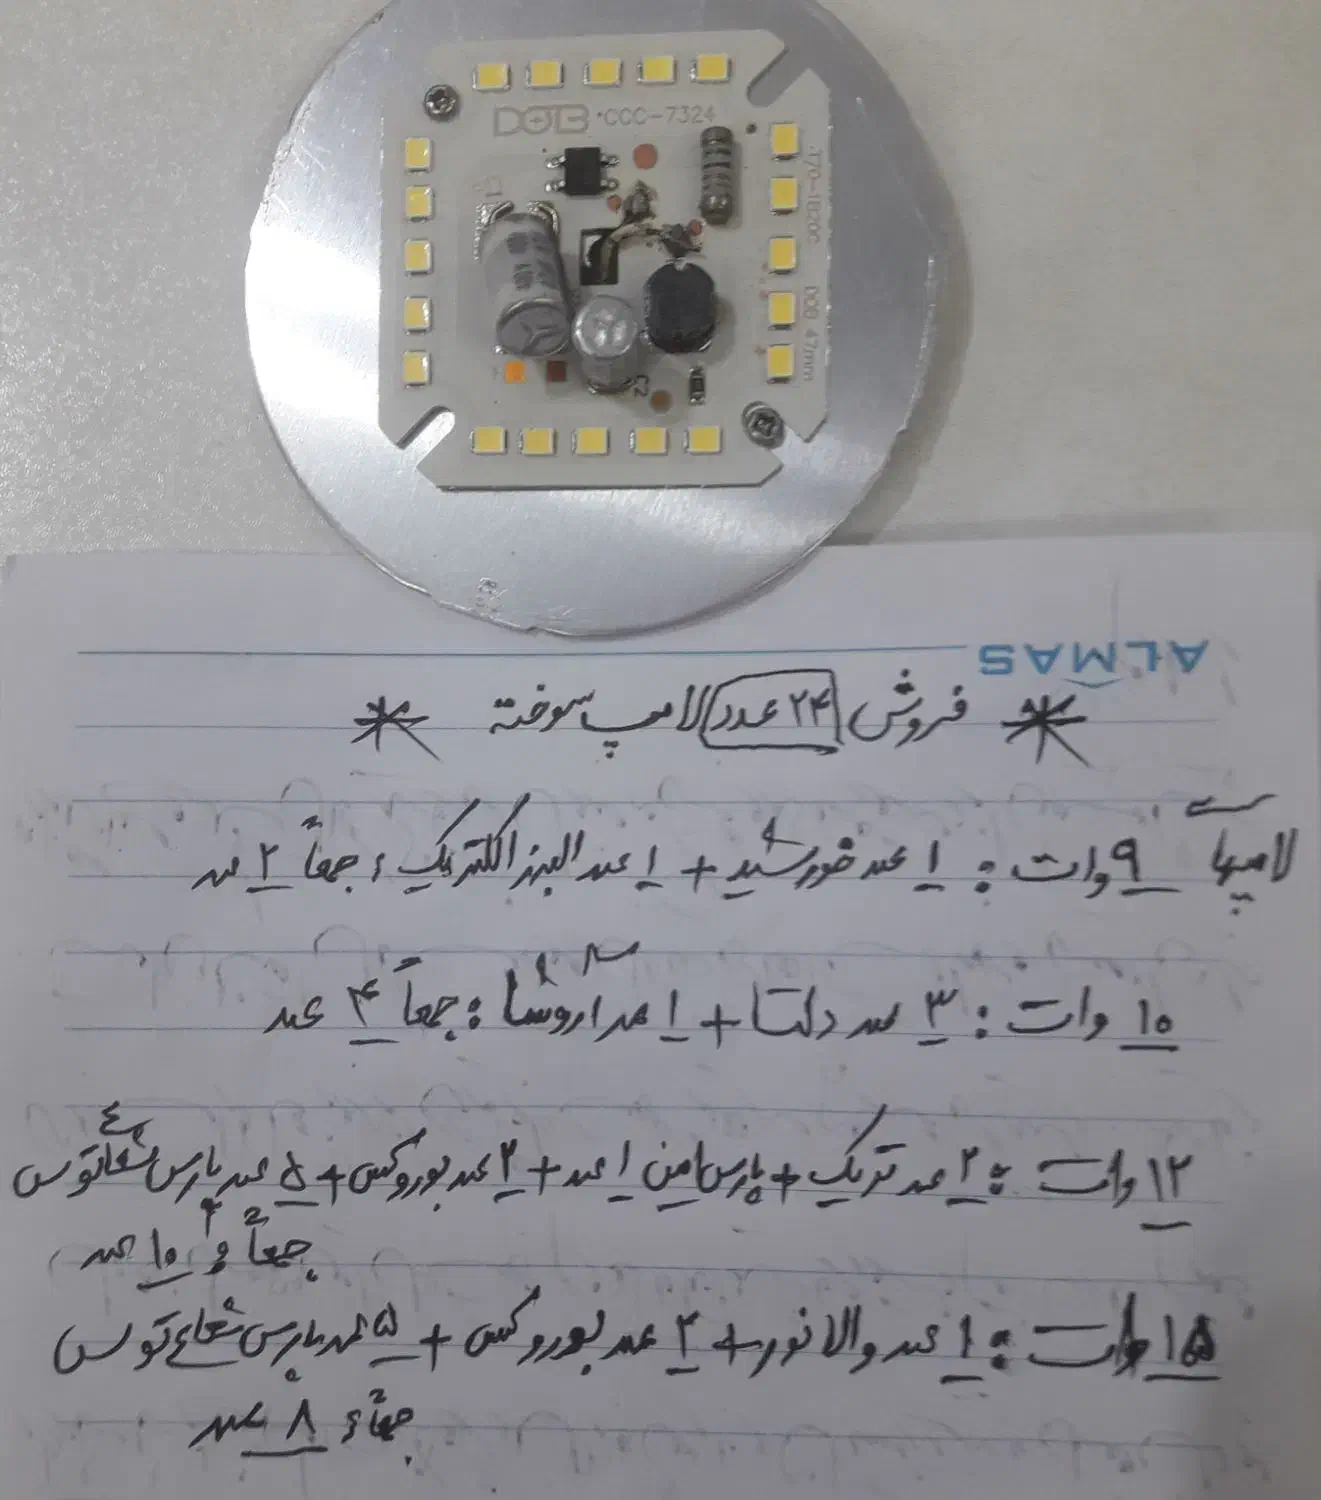 DOB CCC-7324
T70-1820C DOB 47mm
C1
C2
ALMAS
* فروش ۲۴ عدد لامپ سوخته *
لامپهای ۹ وات : ۱ عدد خورشید + ۱ عدد البرز الکتریک ، جمعاً ۲ عدد
۱۰ وات : ۳ عدد دلتا + ۱ عدد اروشا : جمعاً ۴ عدد
۱۲ وات : ۲ عدد تریک + پارس امین ۱ عدد + ۲ عدد بوروکس + ۵ عدد پارس شعاع توس
جمعاً ۱۰ عدد
۱۵ وات : ۱ عدد والا نور + ۲ عدد بوروکس + ۵ عدد پارس شعاع توس
جمعاً ۸ عدد